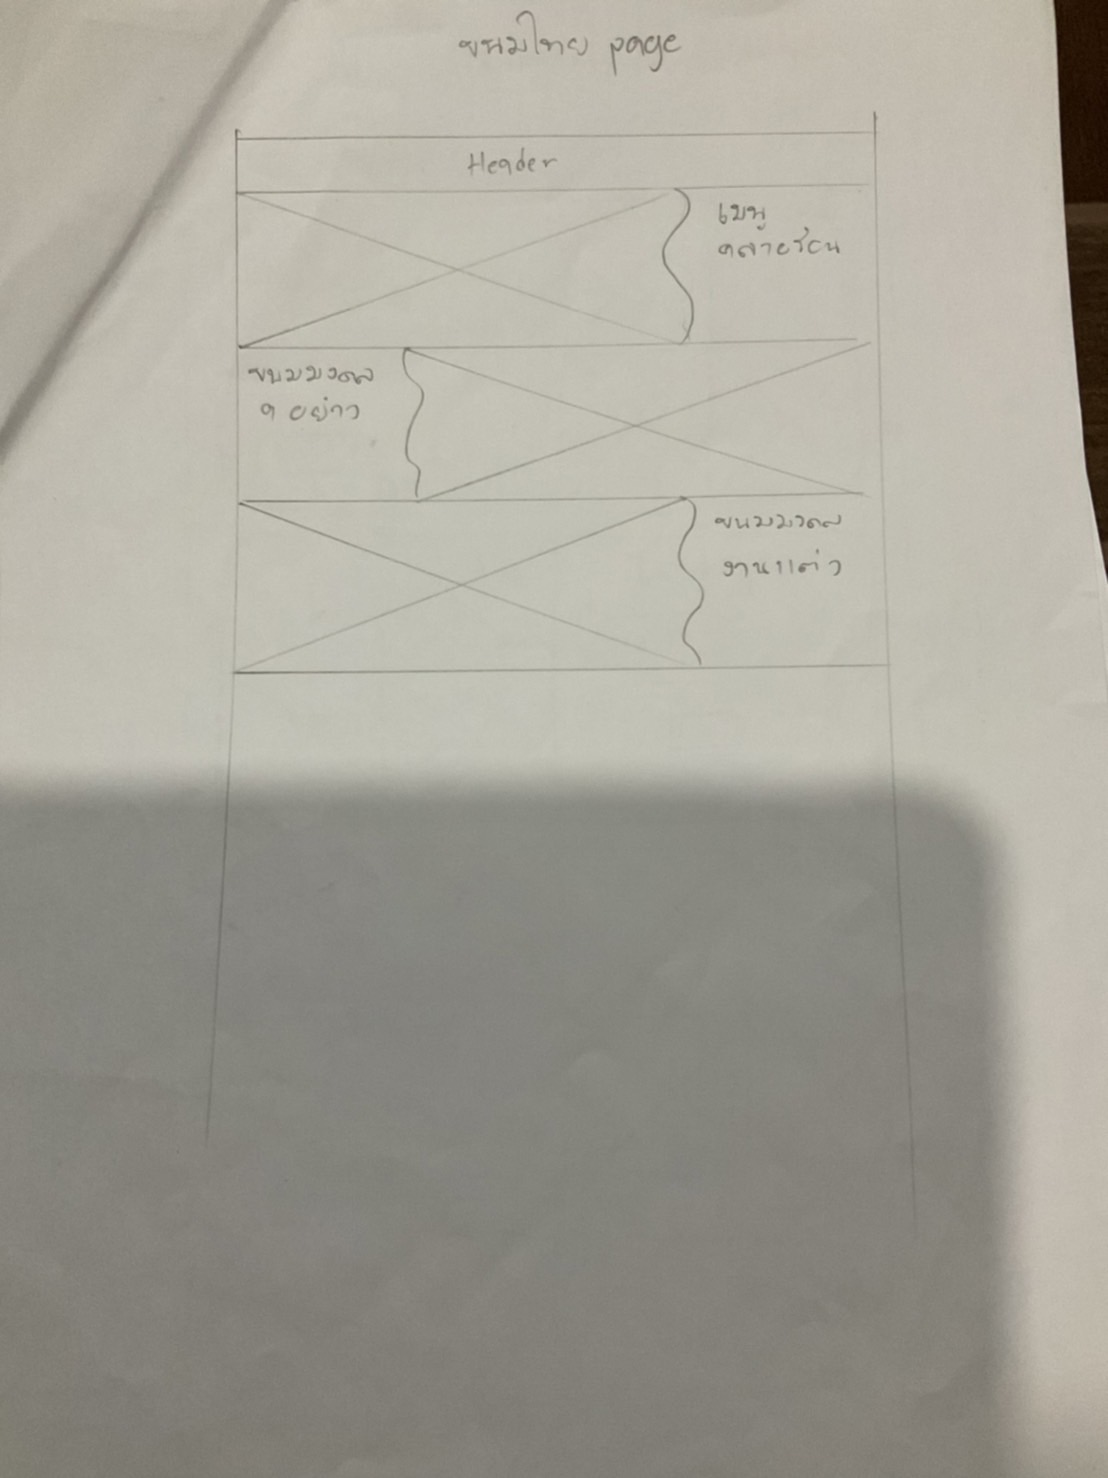 ขนมไทย page
Header
เมนู
คลายร้อน
ขนมมงคล
9 อย่าง
ขนมมงคล
งานแต่ง